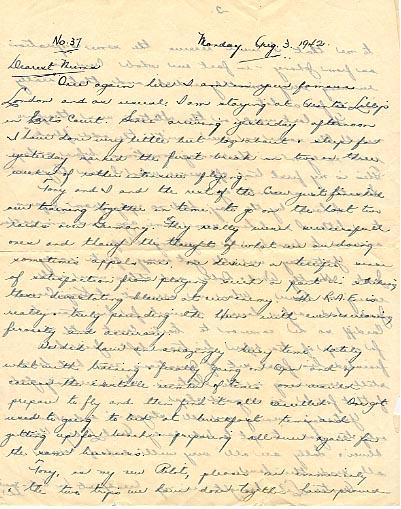 No. 37 Monday Aug. 3. 1942.
Dearest Mum
Once again here I am in your famous
London and as usual I am staying at Auntie Lilly's
in Earls Court. Since arriving yesterday afternoon
I have done very little but laze about & sleep for
yesterday marked the first break in two or three
weeks of rather intensive flying.
Tony and I and the rest of the Crew just finished
our training together in time to go on the last two
raids on Germany. They really were successful
ones and though the thought of what we are doing
sometimes appals one, one derives a terrific sense
of satisfaction from playing such a part in striking
these devastating blows at our enemy. The R.A.F. is
really & truly pounding the Huns with ever increasing
ferocity and accuracy.
We did have an amazingly busy time lately
what with training & finally going on Ops and of
course the inevitable number of times one would
prepare to fly and then find it all cancelled. One got
used to going to bed at breakfast time and
getting up for lunch & preparing all over again for
the same business.
Tony, as my new Pilot, pleases me immensely
& the two trips we have done together have proved